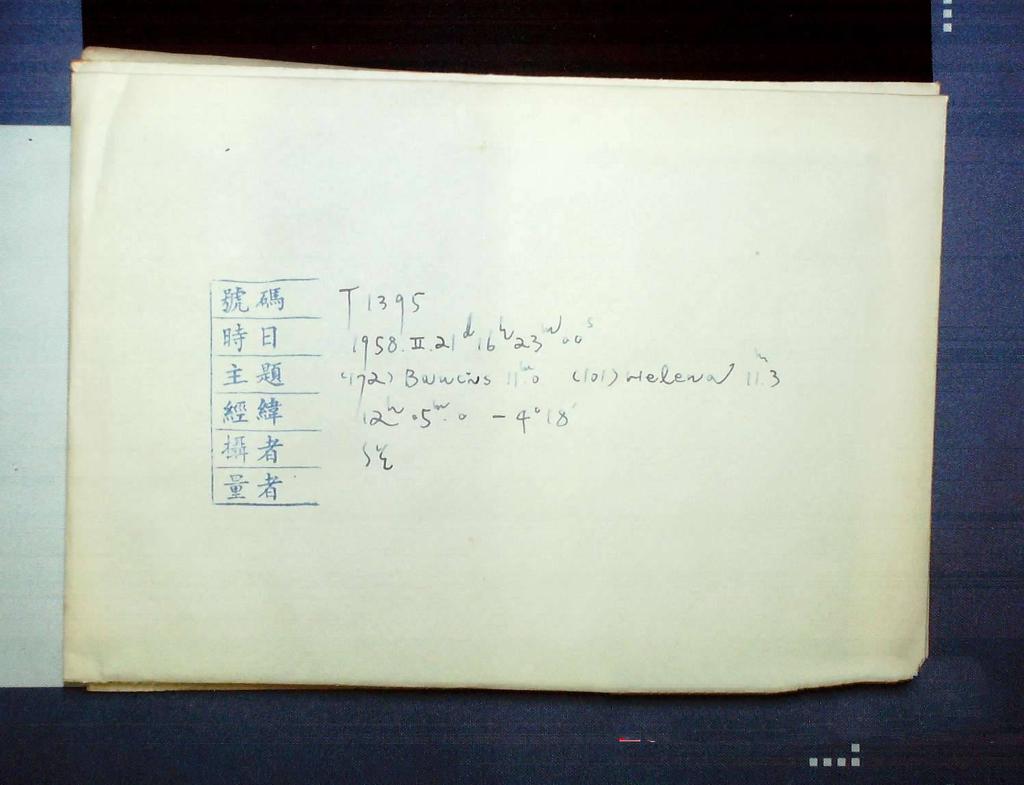 號碼 T1395
時日 1958.II.21ᵈ16ʰ23ᵐ00ˢ
主題 (172) Baucis 11ᵐ.0 (101) Helena 11ᵐ.3
經緯 12ʰ05ᵐ.0 -4°18′
攝者
量者